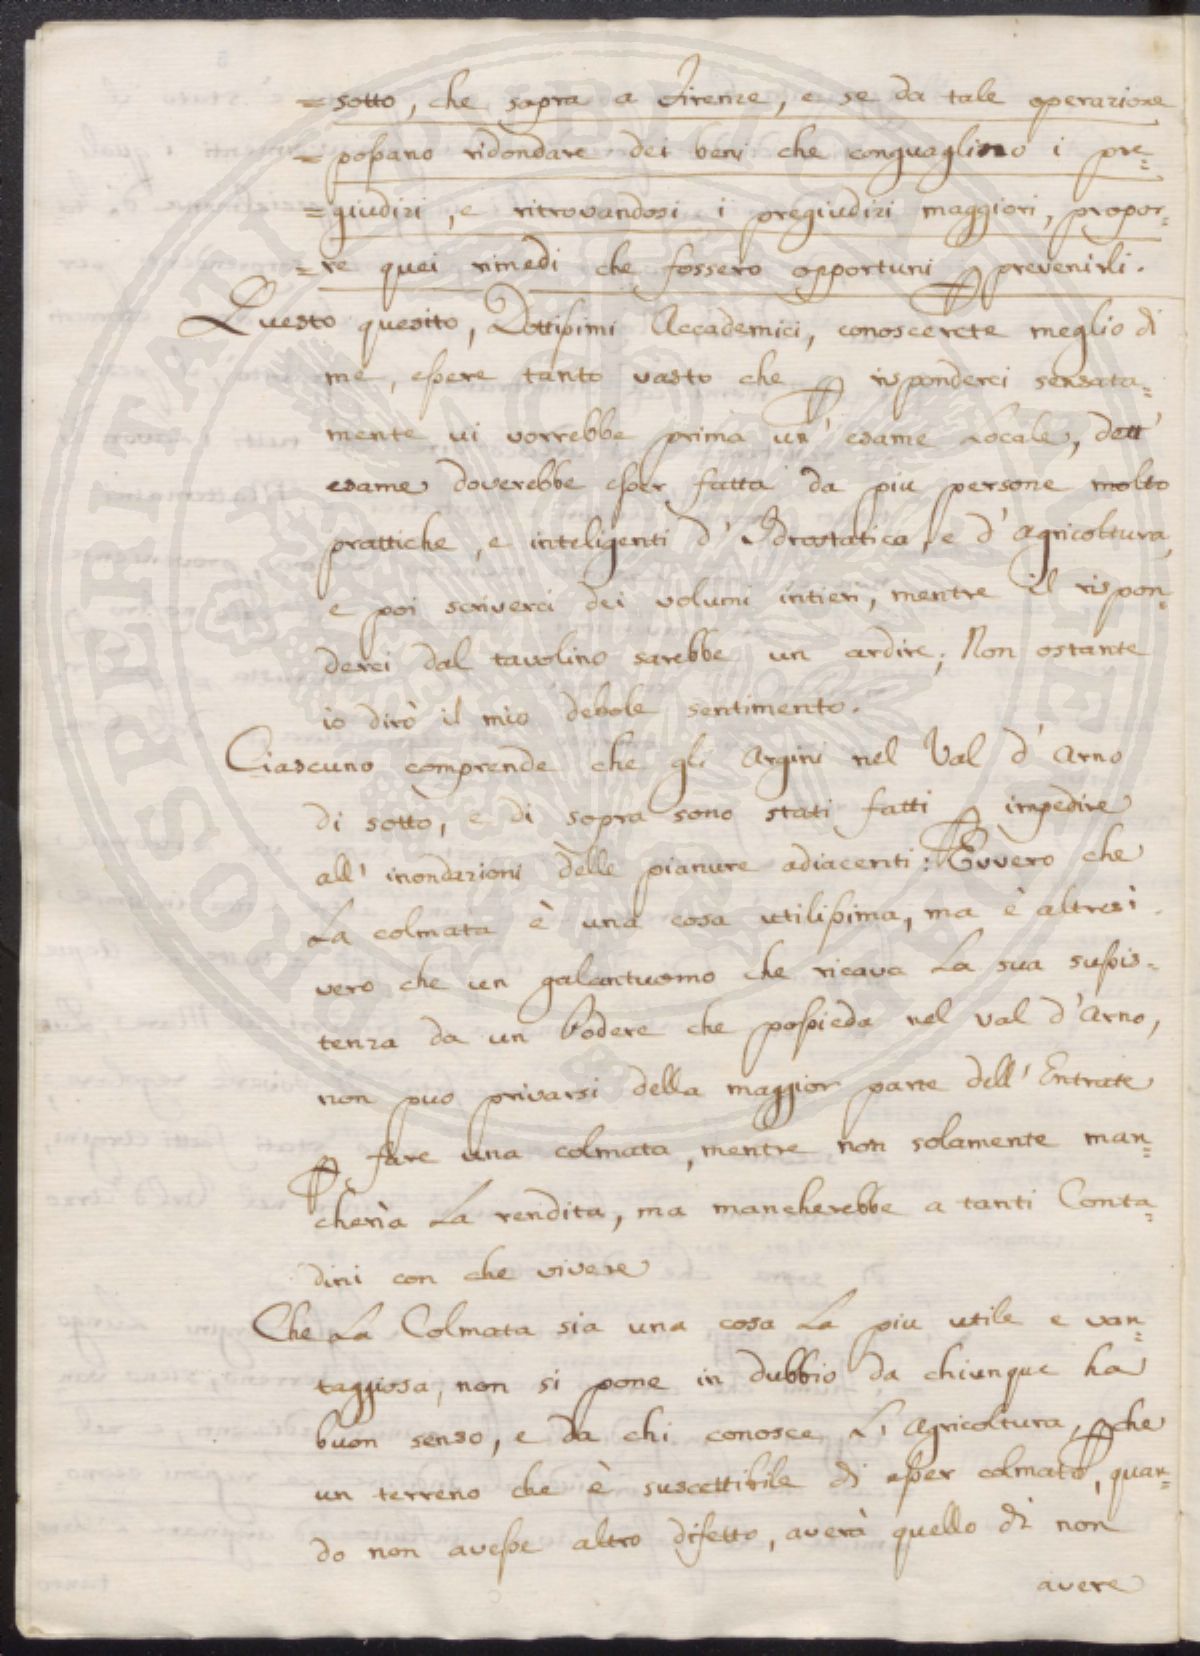 = sotto, che sopra a Firenze, e se da tale operazione
= possano ridondare dei beni che conguaglino i pre=
= giudizi, e ritrovandosi i pregiudizi maggiori, propor=
= re quei rimedi che fossero opportuni p prevenirli.
Questo quesito, Dottissimi Accademici, conoscerete meglio di
me, essere tanto vasto che p risponderci sensata=
mente vi vorrebbe prima un' esame Locale, dett'
esame doverebbe esser fatta da piu persone molto
prattiche, e inteligenti d' Idrostatica, e d' Agricoltura,
e poi scriverci dei volumi intieri, mentre il rispon=
derci dal tavolino sarebbe un ardire; Non ostante
io dirò il mio debole sentimento.
Ciascuno comprende che gli Argini nel Val d' Arno
di sotto, e di sopra sono stati fatti p impedire
all' inondazioni delle pianure adiacenti: Evvero che
La colmata è una cosa utilissima, ma è altresì
vero che un galantuomo che ricava La sua sussis=
tenza da un Podere che possieda nel Val d' Arno,
non puo privarsi della maggior parte dell' Entrate
p fare una colmata, mentre non solamente man=
cherìa La rendita, ma mancherebbe a tanti Conta=
dini con che vivere
Che La Colmata sia una cosa La piu utile e van=
taggiosa, non si pone in dubbio da chiunque ha
buon senso, e da chi conosce L' Agricoltura, pche
un terreno che è suscettibile di esser colmato, quan=
do non avesse altro difetto, averà quello di non
avere
PROSPERITATI PUBLICAE